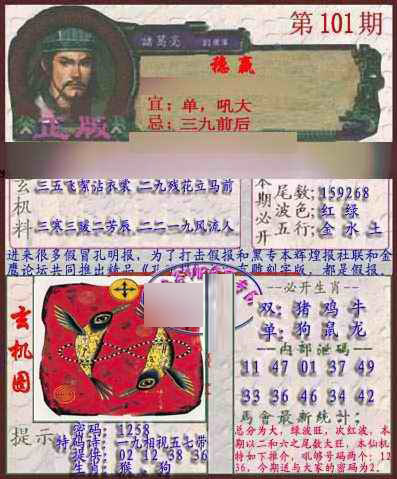 第101期
諸葛亮
稳赢
宜：单，吼大
忌：三九前后
正版
玄机料
三五飞絮沾衣裳 二九残花立马前
三寒三贼二芳辰 二二一九风流人
本期必开
尾数：159268
波色；红 绿
五行；金 水 土
进来很多假冒孔明报，为了打击假报和黑专本辉煌报社联和金
鹰论坛共同推出精品
刻字版，都是假报.
玄机图
--必开生肖--
双：猪 鸡 牛
单：狗 鼠 龙
--内部泄码--
11 47 01 37 49
33 36 46 34 42
馬會最新統計：
总分为大，绿波旺，次红波，本
期以二和六之尾数大旺，本仙机
特如下推介，吼够号码两个：12
36，今期送与大家的密码为2.
提示
密码：1258
特码诗：一九相视五七带
提倍：02 12 38 36
生肖：猴，狗